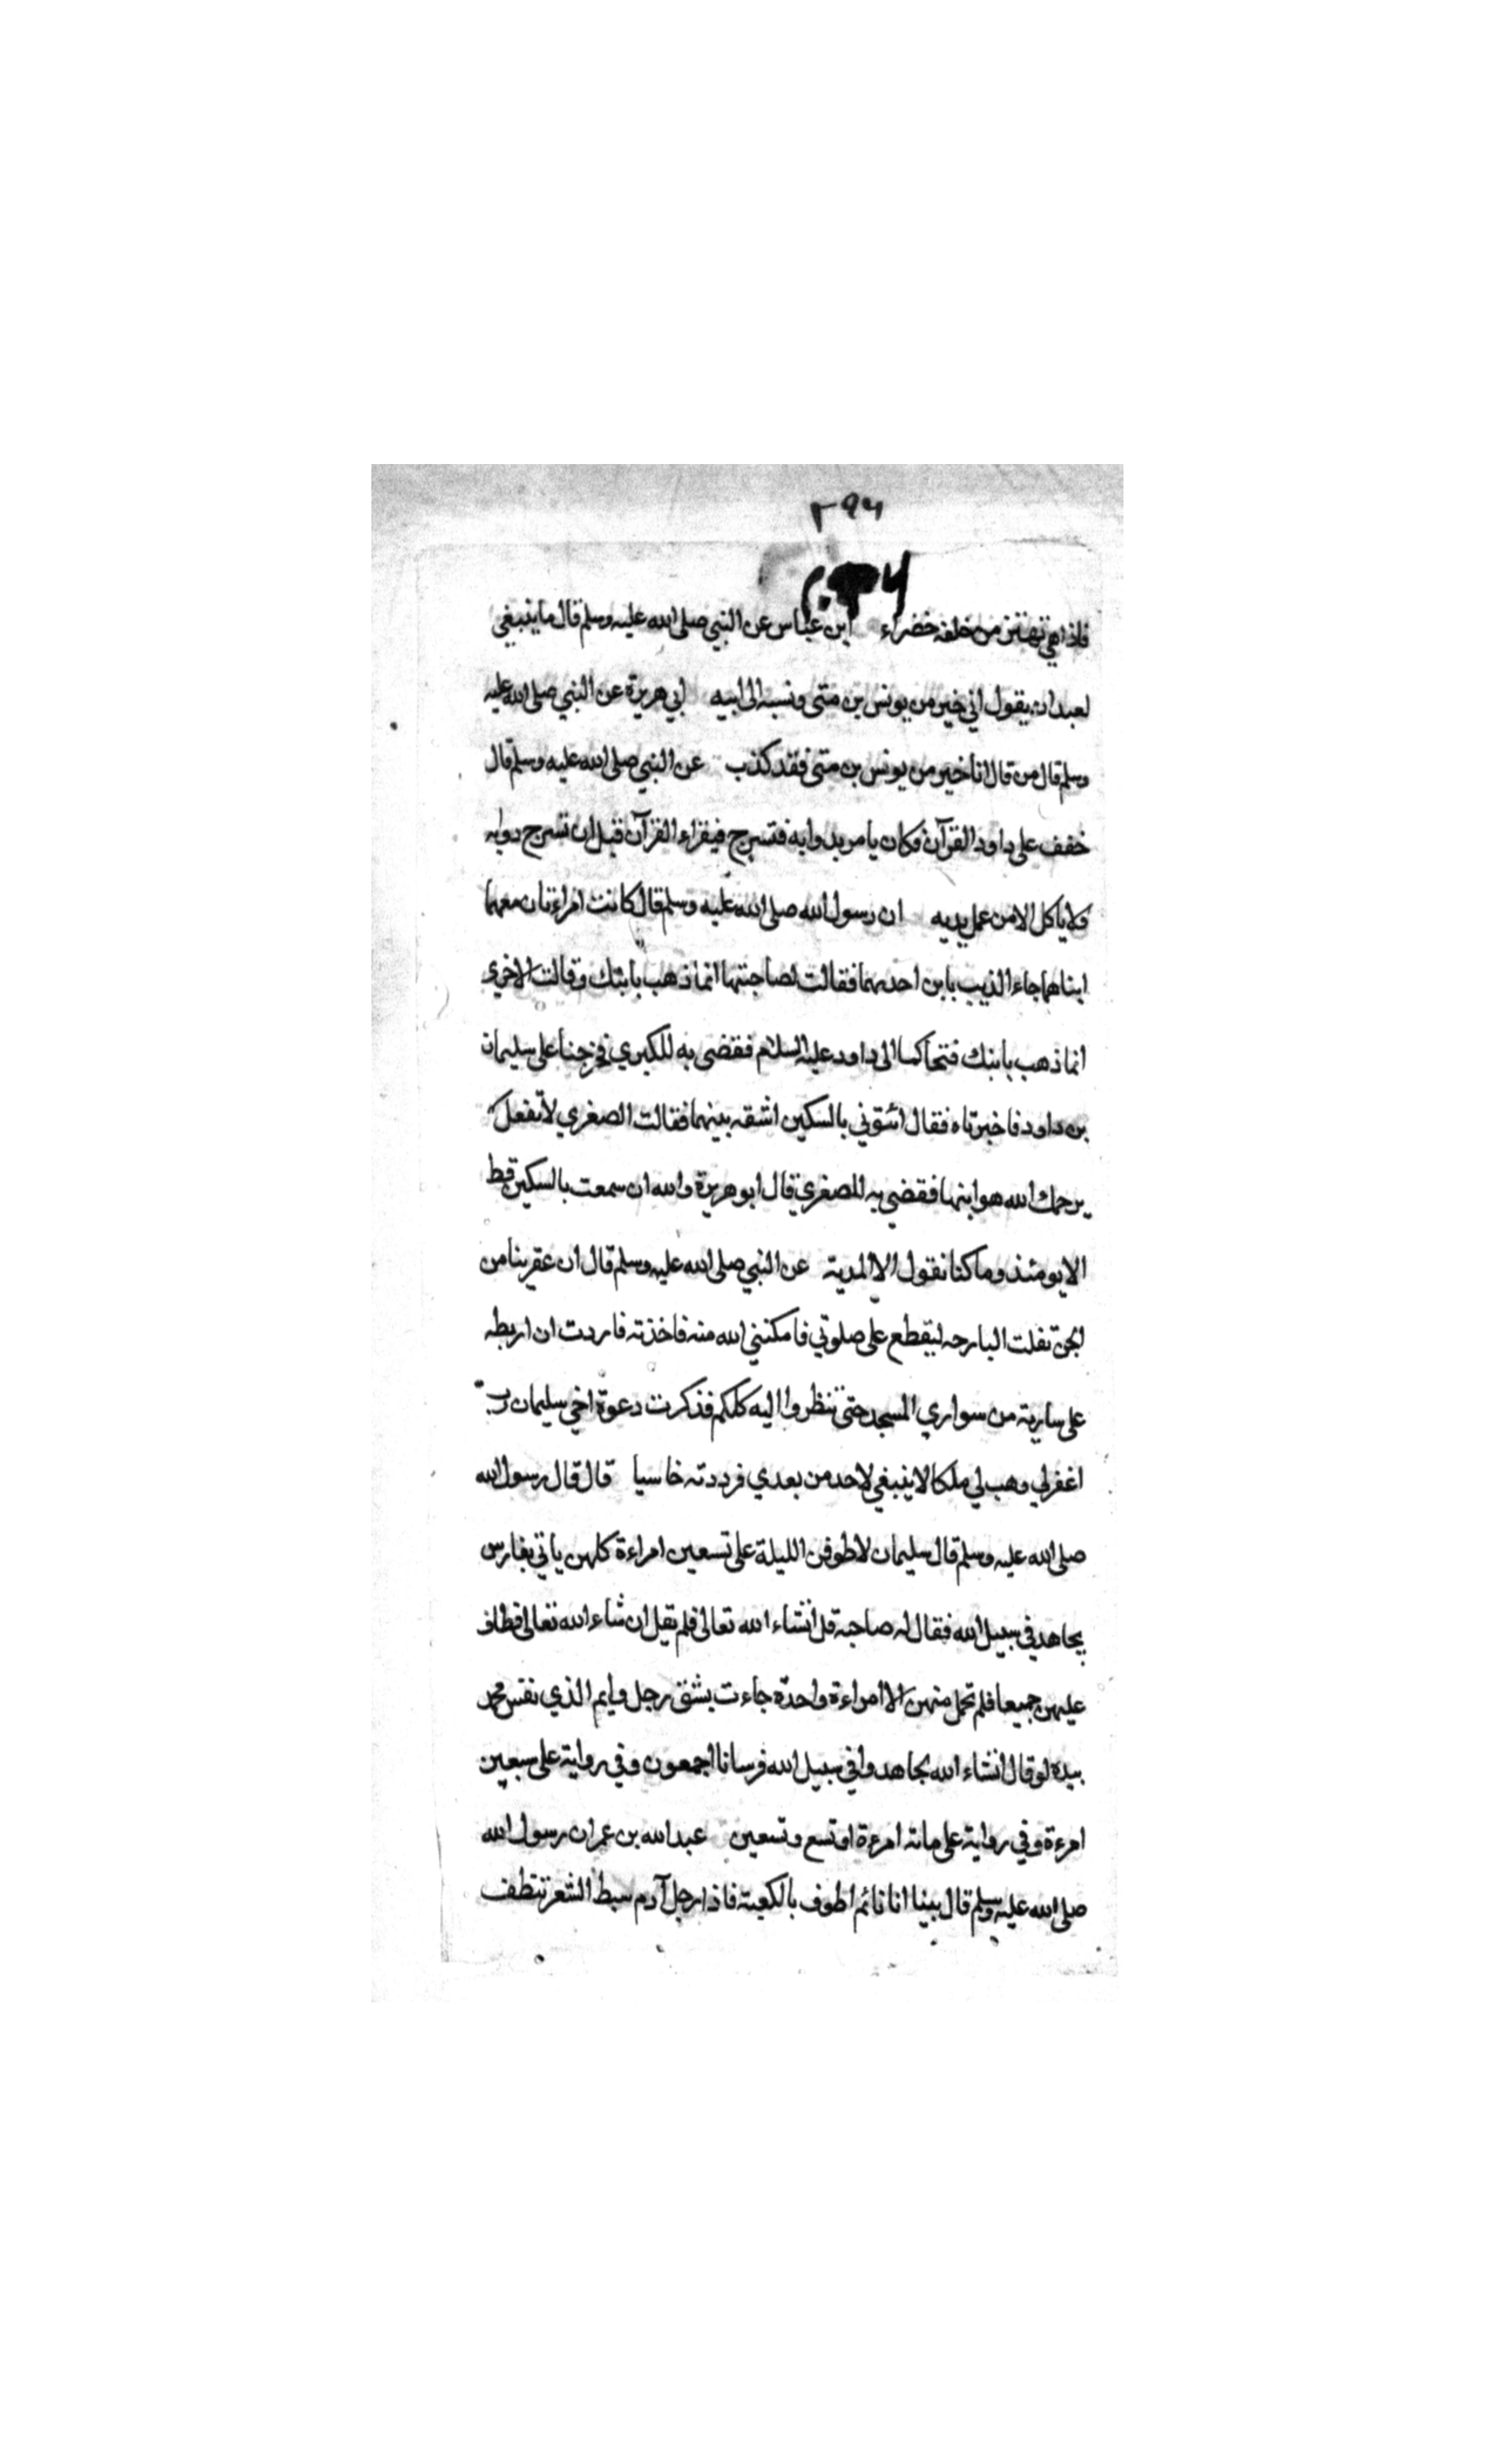 ٢٩٦
فاذا هي تهتز من خلفه خضراء ابن عباس عن النبي صلى الله عليه وسلم قال ما ينبغي
لعبد ان يقول اني خير من يونس بن متى ونسبه الى ابيه ابي هريرة عن النبي صلى الله عليه
وسلم قال من قال انا خير من يونس بن متى فقد كذب عن النبي صلى الله عليه وسلم قال
خفف على داود القرآن فكان يامر بدوابه فتسرج فيقراء القرآن قبل ان تسرج دوابه
ولا ياكل الا من عمل يديه ان رسول الله صلى الله عليه وسلم قال كانت امراءتان معهما
ابناهما جاء الذيب بابن احديهما فقالت لصاحبتها انما ذهب بابنك وقالت الاخرى
انما ذهب بابنك فتحاكما الى داود عليه السلام فقضى به للكبري فخرجنا على سليمان
بن داود فاخبرتاه فقال ائتوني بالسكين اشقه بينهما فقالت الصغري لا تفعل
يرحمك الله هو ابنها فقضي به للصغري قال ابو هريرة والله ان سمعت بالسكين قط
الا يومئذ وما كنا نقول الا المدية عن النبي صلى الله عليه وسلم قال ان عفريتا من
الجن تفلت البارحه ليقطع على صلوتي فامكنني الله منه فاخذته فاردت ان اربطه
على سارية من سواري المسجد حتى تنظروا اليه كلكم فذكرت دعوة اخي سليمان رب
اغفرلي وهب لي ملكا لا ينبغي لاحد من بعدي فرددته خاسيا قال قال رسول الله
صلى الله عليه وسلم قال سليمان لاطوفن الليلة على تسعين امراءة كلهن ياتي بفارس
يجاهد في سبيل الله فقال له صاحبه قل انشاء الله تعالى فلم يقل ان شاء الله تعالى فطاف
عليهن جميعا فلم تحمل منهن الا امراءة واحدة جاءت بشق رجل وايم الذي نفس محمد
بيده لو قال انشاء الله لجاهدوا في سبيل الله فرسانا اجمعون وفي رواية على سبعين
امرءة وفي رواية على مائة امرءة او تسع وتسعين عبد الله بن عمر ان رسول الله
صلى الله عليه وسلم قال بينا انا نائم اطوف بالكعبة فاذا رجل آدم سبط الشعر تنطف